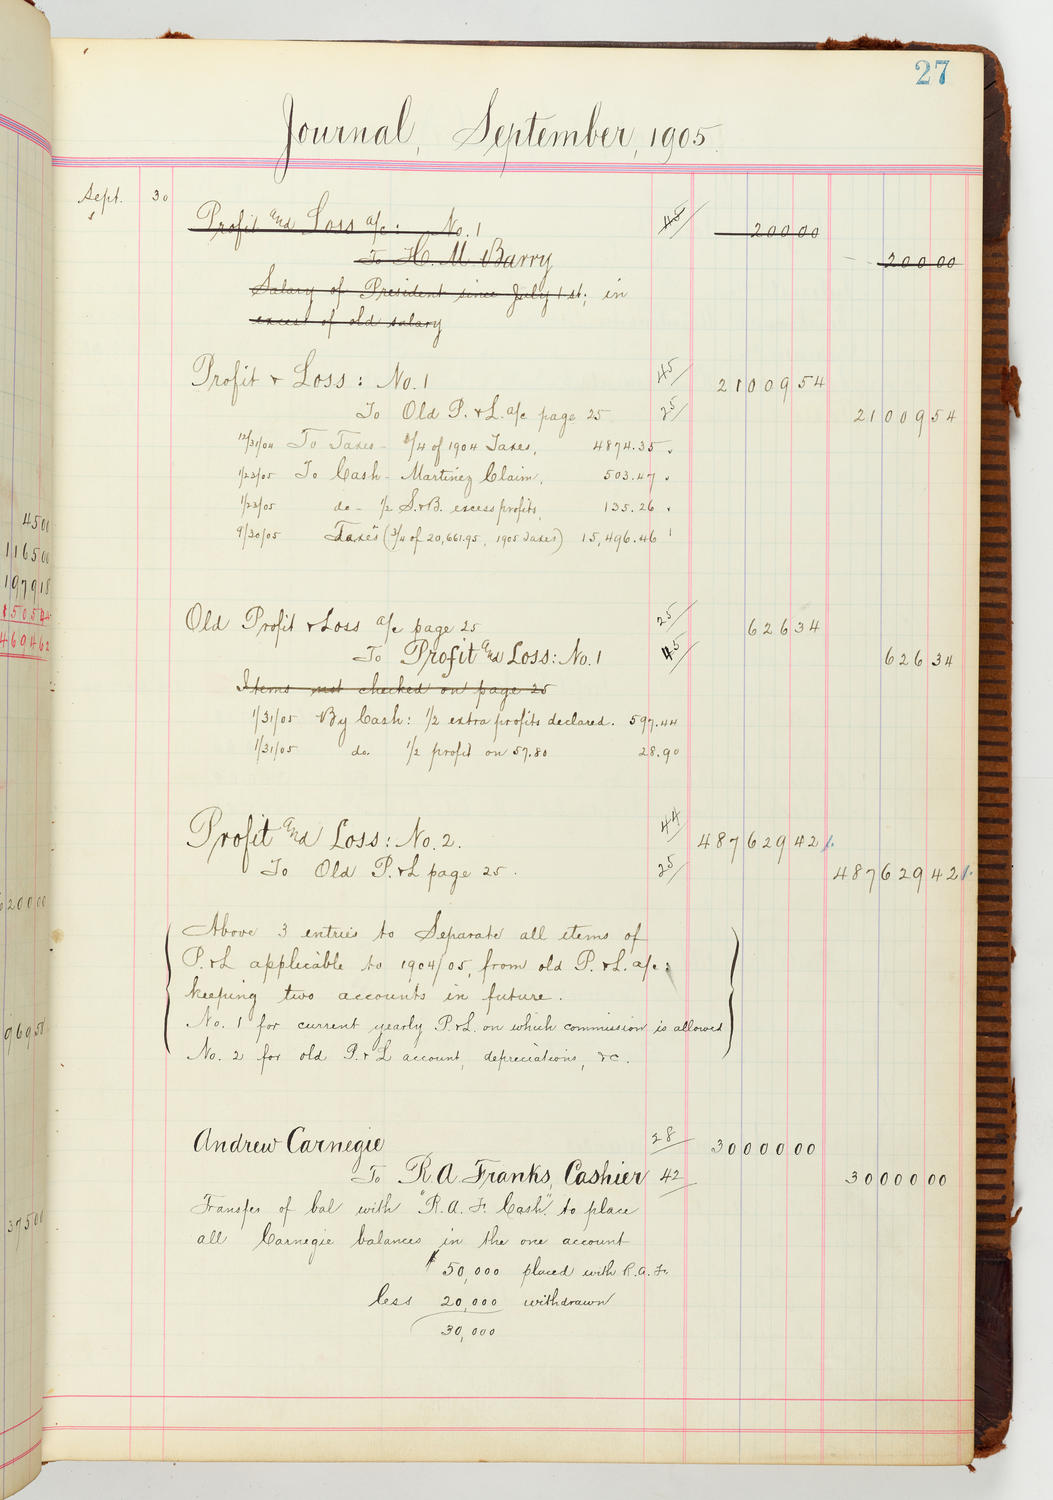 27
Journal, September, 1905.
Sept. 30
Profit and Loss a/c: No. 1 45 200 00
To H. M. Barry 200 00
Salary of President since July 1st; in
excess of old salary
Profit & Loss: No. 1 45 21009 54
To Old P. & L. a/c page 25 25 21009 54
12/31/04 To Taxes - 1/4 of 1904 Taxes, 4874.35
1/23/05 To Cash - Martinez Claim, 503.47
1/23/05 do - 1/2 S. & B. excess profits, 135.26
9/30/05 Taxes (3/4 of 20,661.95, 1905 Taxes) 15,496.46
Old Profit & Loss a/c page 25 25 626 34
To Profit and Loss: No. 1 45 626 34
Items not checked on page 25
1/31/05 By Cash: 1/2 extra profits declared. 597.44
1/31/05 do. 1/2 profit on 57.80 28.90
Profit and Loss: No. 2. 44 487629 42
To Old P. & L page 25. 25 487629 42
Above 3 entries to Separate all items of
P. & L applicable to 1904/05, from old P. & L. a/c:
keeping two accounts in future.
No. 1 for current yearly P. & L. on which commission is allowed
No. 2 for old P. & L account, depreciations, &c.
Andrew Carnegie 28 30000 00
To R. A. Franks, Cashier 42 30000 00
Transfer of bal with "R. A. F. Cash" to place
all Carnegie balances in the one account
$50,000 placed with R. A. F.
less 20,000 withdrawn
30,000
4500
116500
197918
15054
469462
20000
96951
37500